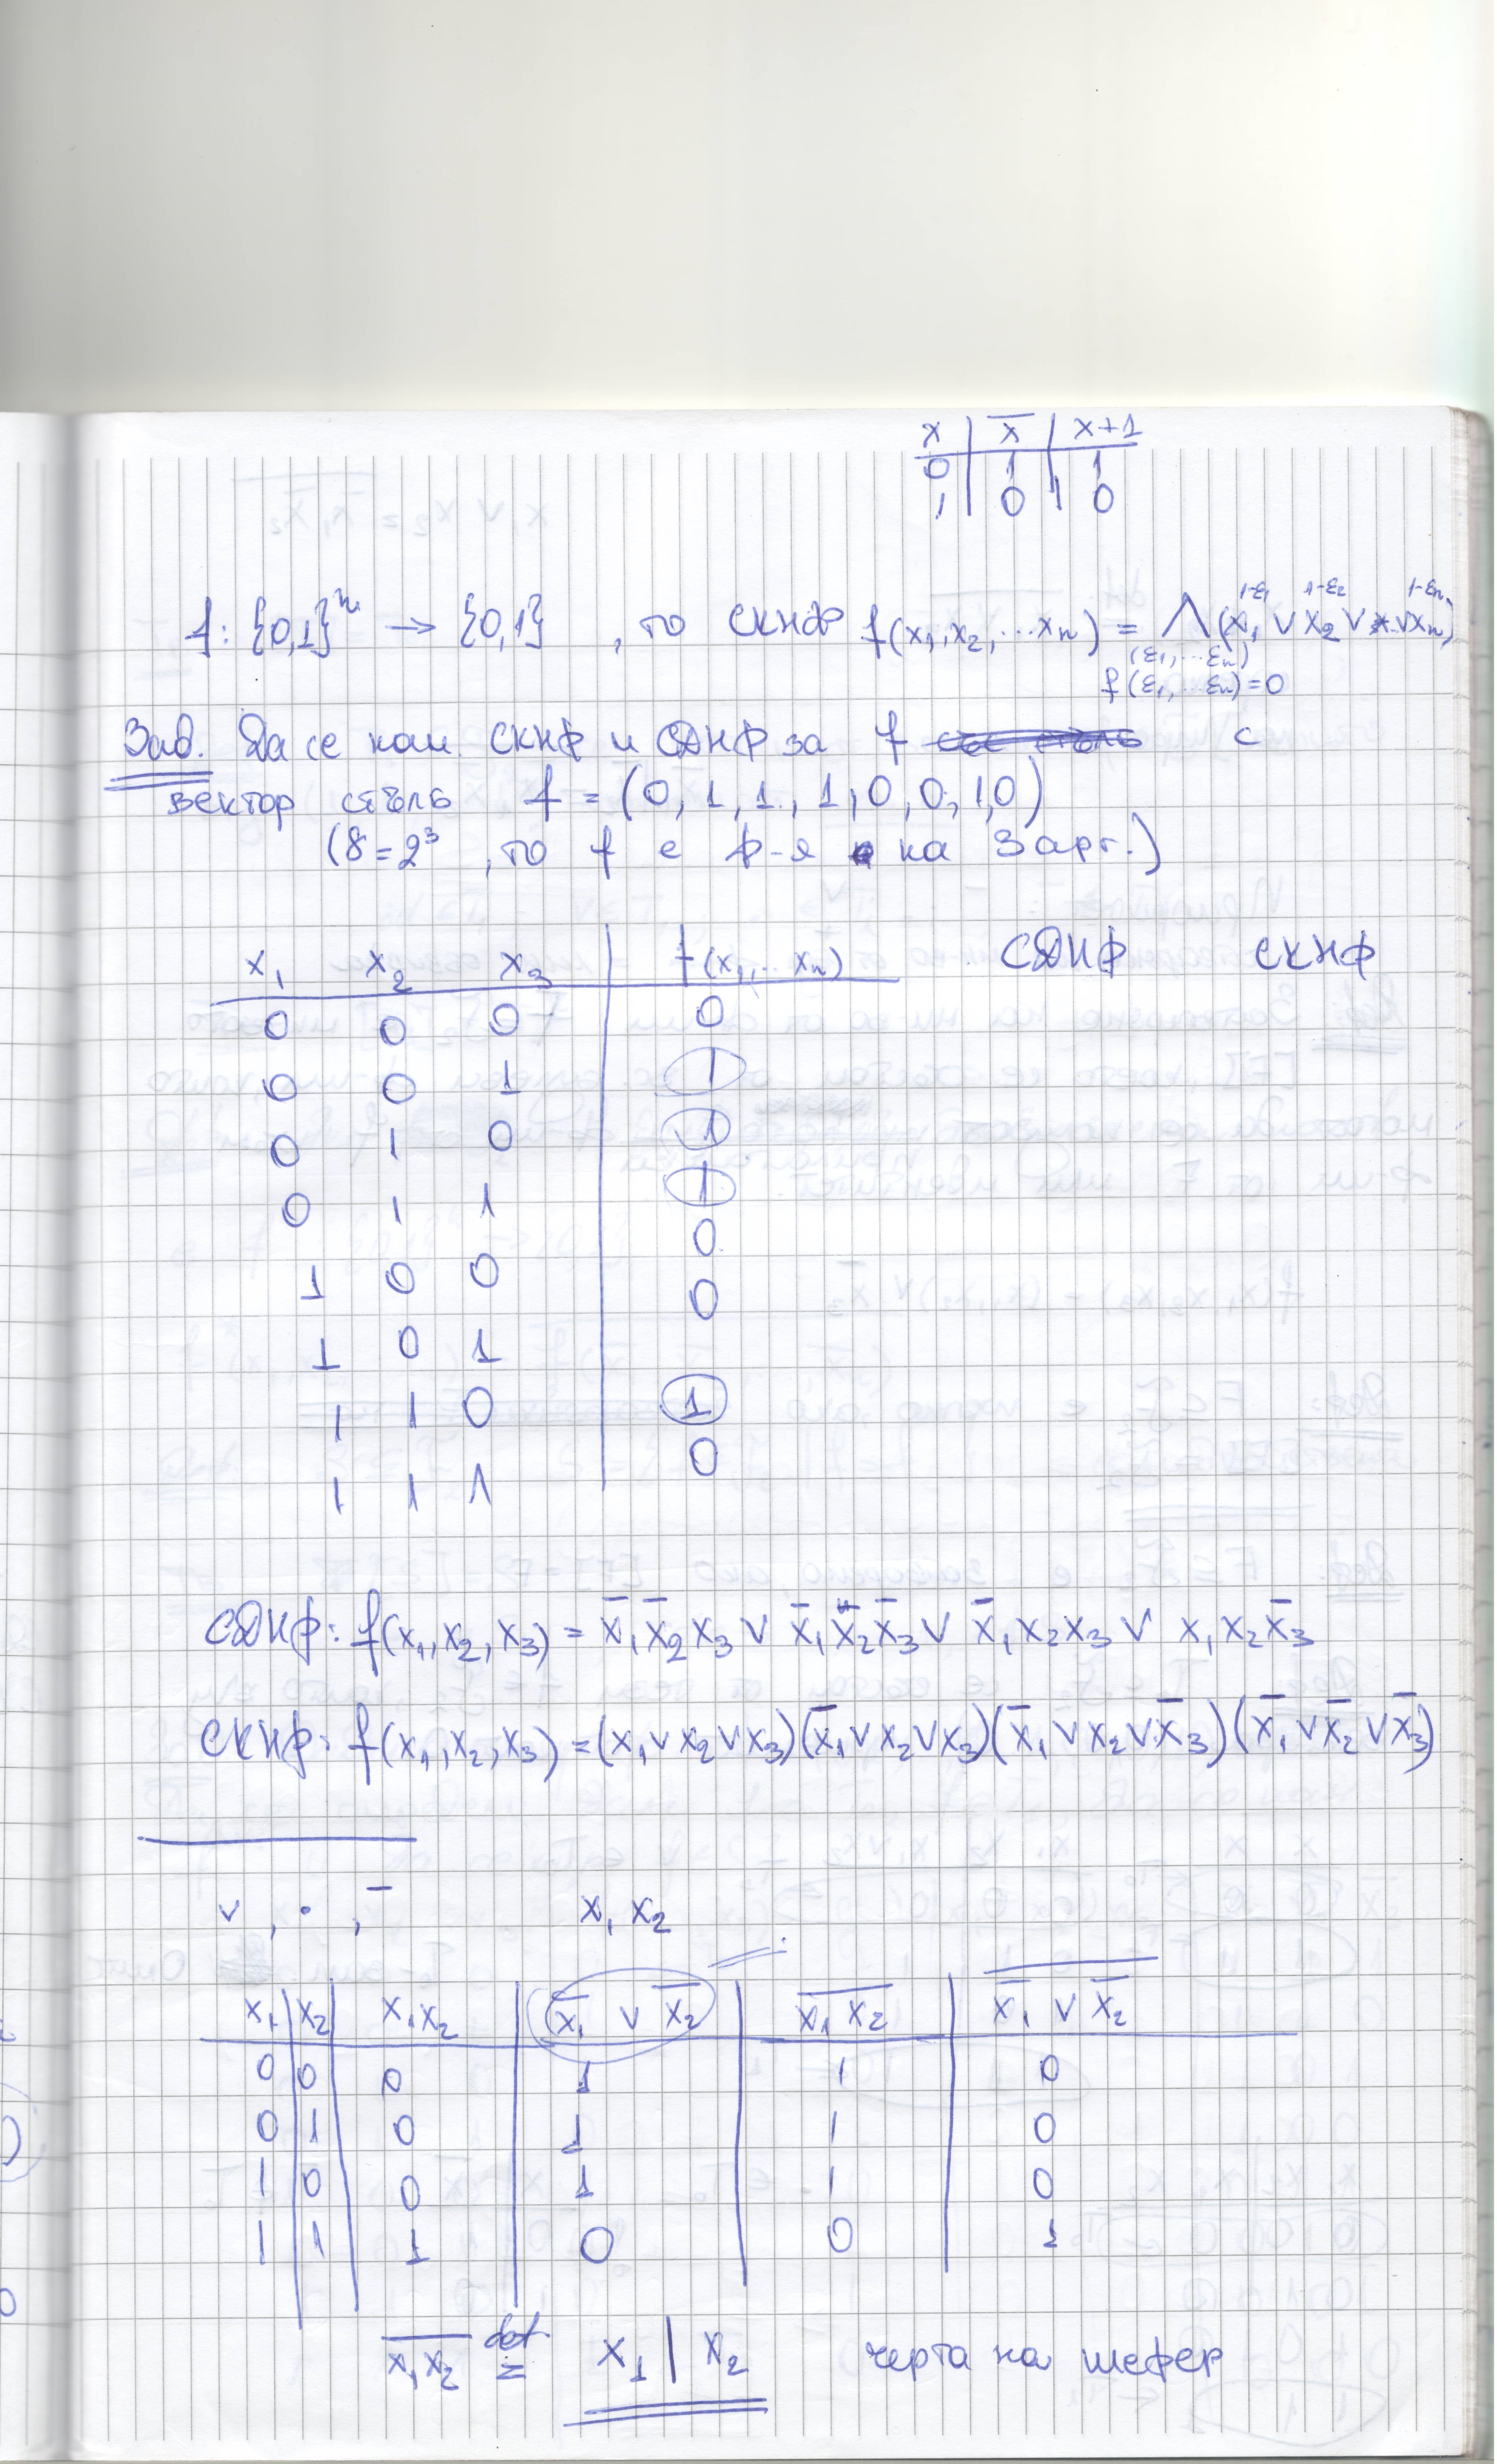 x | x̅ | x+1
0 | 1 | 1
1 | 0 | 0
f: {0,1}ⁿ → {0,1} , то СКНФ f(x₁,x₂,...xₙ) = ∧(x₁^(1-ε₁) ∨ x₂^(1-ε₂) ∨ .. ∨ xₙ^(1-εₙ))
(ε₁,...εₙ)
f(ε₁,...εₙ)=0
Зад. Да се нам. СКНФ и СДНФ за f с
вектор стълб f = (0,1,1,1,0,0,1,0)
(8=2³ , то f е ф-я на 3 арг.)
x₁ x₂ x₃ | f(x₁,...xₙ) СДНФ СКНФ
0 0 0 | 0
0 0 1 | 1
0 1 0 | 1
0 1 1 | 1
1 0 0 | 0
1 0 1 | 0
1 1 0 | 1
1 1 1 | 0
СДНФ: f(x₁,x₂,x₃) = x̅₁x̅₂x₃ ∨ x̅₁x₂x̅₃ ∨ x̅₁x₂x₃ ∨ x₁x₂x̅₃
СКНФ: f(x₁,x₂,x₃) = (x₁∨x₂∨x₃)(x̅₁∨x₂∨x₃)(x̅₁∨x₂∨x̅₃)(x̅₁∨x̅₂∨x̅₃)
∨ , • , ¯ x₁x₂
x₁ | x₂ | x₁x₂ | x̅₁ ∨ x̅₂ | x̅₁x̅₂̅ | x̅₁ ∨ x̅₂
0 | 0 | 0 | 1 | 1 | 0
0 | 1 | 0 | 1 | 1 | 0
1 | 0 | 0 | 1 | 1 | 0
1 | 1 | 1 | 0 | 0 | 1
x̅₁̅x̅₂̅ def= x₁ | x₂ черта на шефер